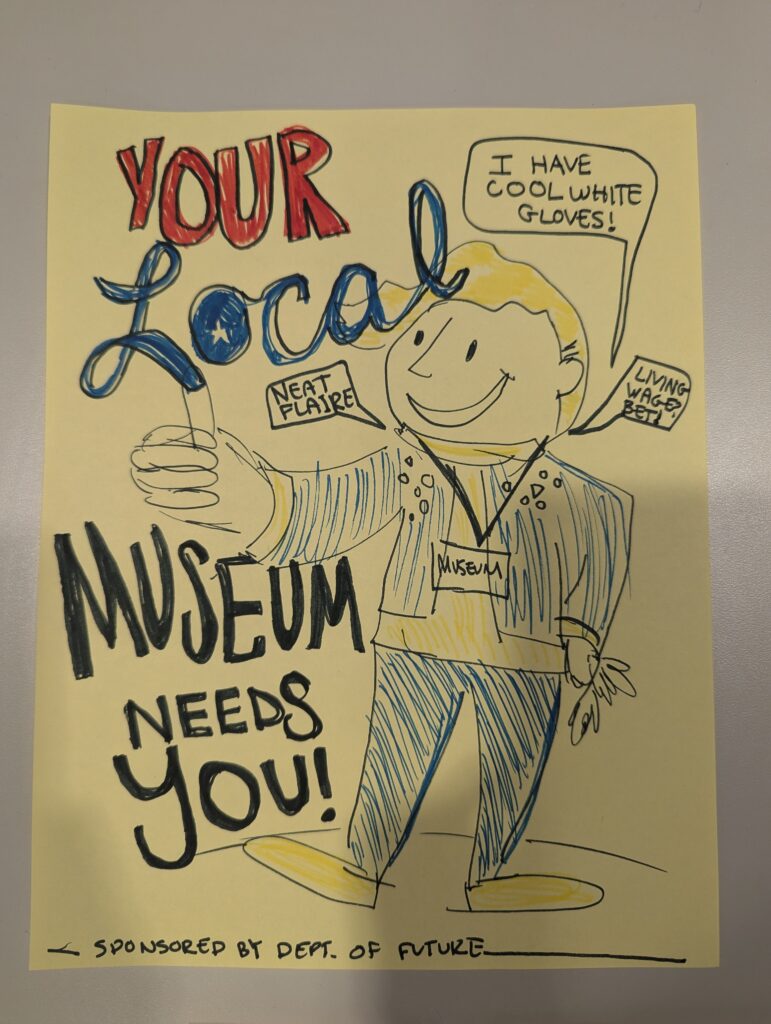 YOUR
Local
I HAVE
COOL WHITE
GLOVES!
NEAT
FLAIRE
LIVING
WAGE?
BET!
MUSEUM
MUSEUM
NEEDS
YOU!
SPONSORED BY DEPT. OF FUTURE